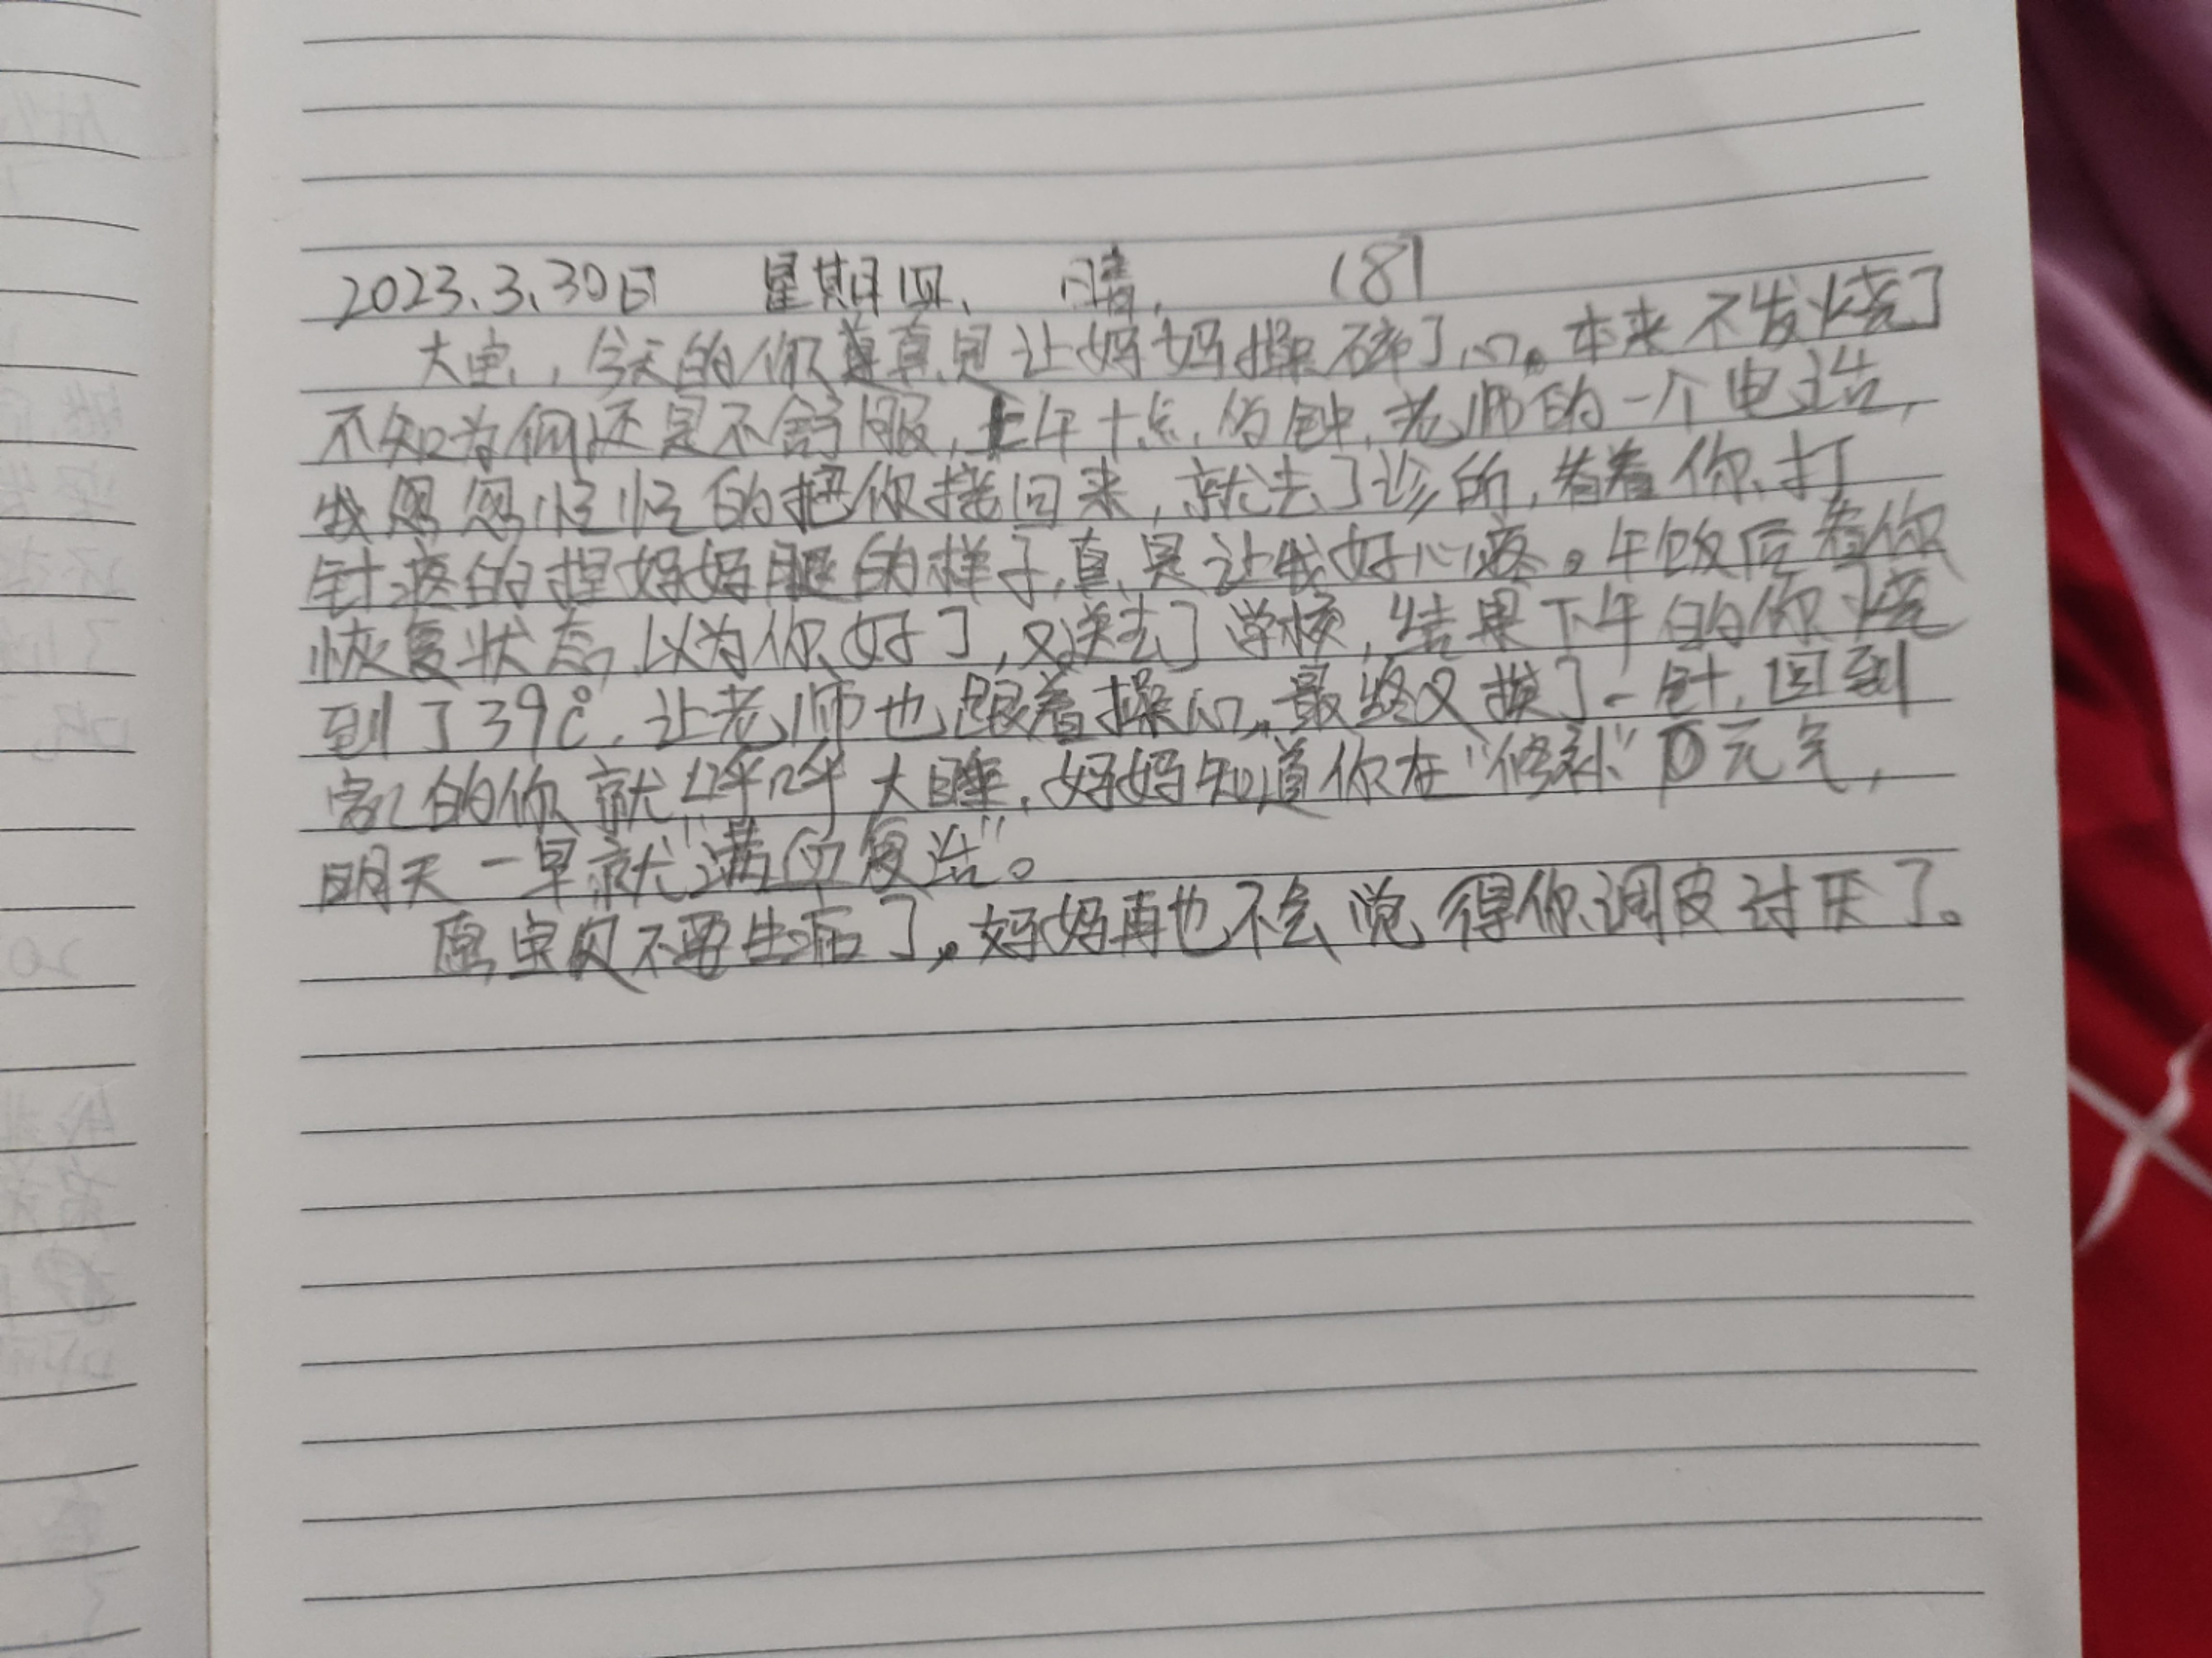 2023.3.30日 星期四、 晴, (8)
大宝,今天的你真是让妈妈操碎了心。本来不发烧了
不知为何还是不舒服,上午十点的钟,老师的一个电话,
我忽忽忙忙的把你接回来,就去了诊所,看着你打
针疼的捏妈妈腿的样子,真是让我好心疼。午饭后看你
恢复状态,以为你好了,又送去了学校,结果下午的你烧
到了39℃,让老师也跟着操心,最终又挨了一针,回到
家的你就呼呼大睡,妈妈知道你在“修补”元气,
明天一早就“满血复活”。
愿宝贝不要生病了,妈妈再也不会觉得你调皮讨厌了。